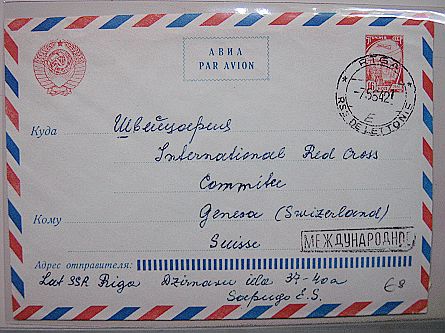 АВИА
PAR AVION
RIGA
RSS DE LETTONIE
Куда
Швейцария
International Red Cross
Commitee
Кому
Geneva (Swizerland)
Suisse
МЕЖДУНАРОДНОЕ
Адрес отправителя:
Lat SSR Riga Dzirnavu ielā 37-40a
E.S.